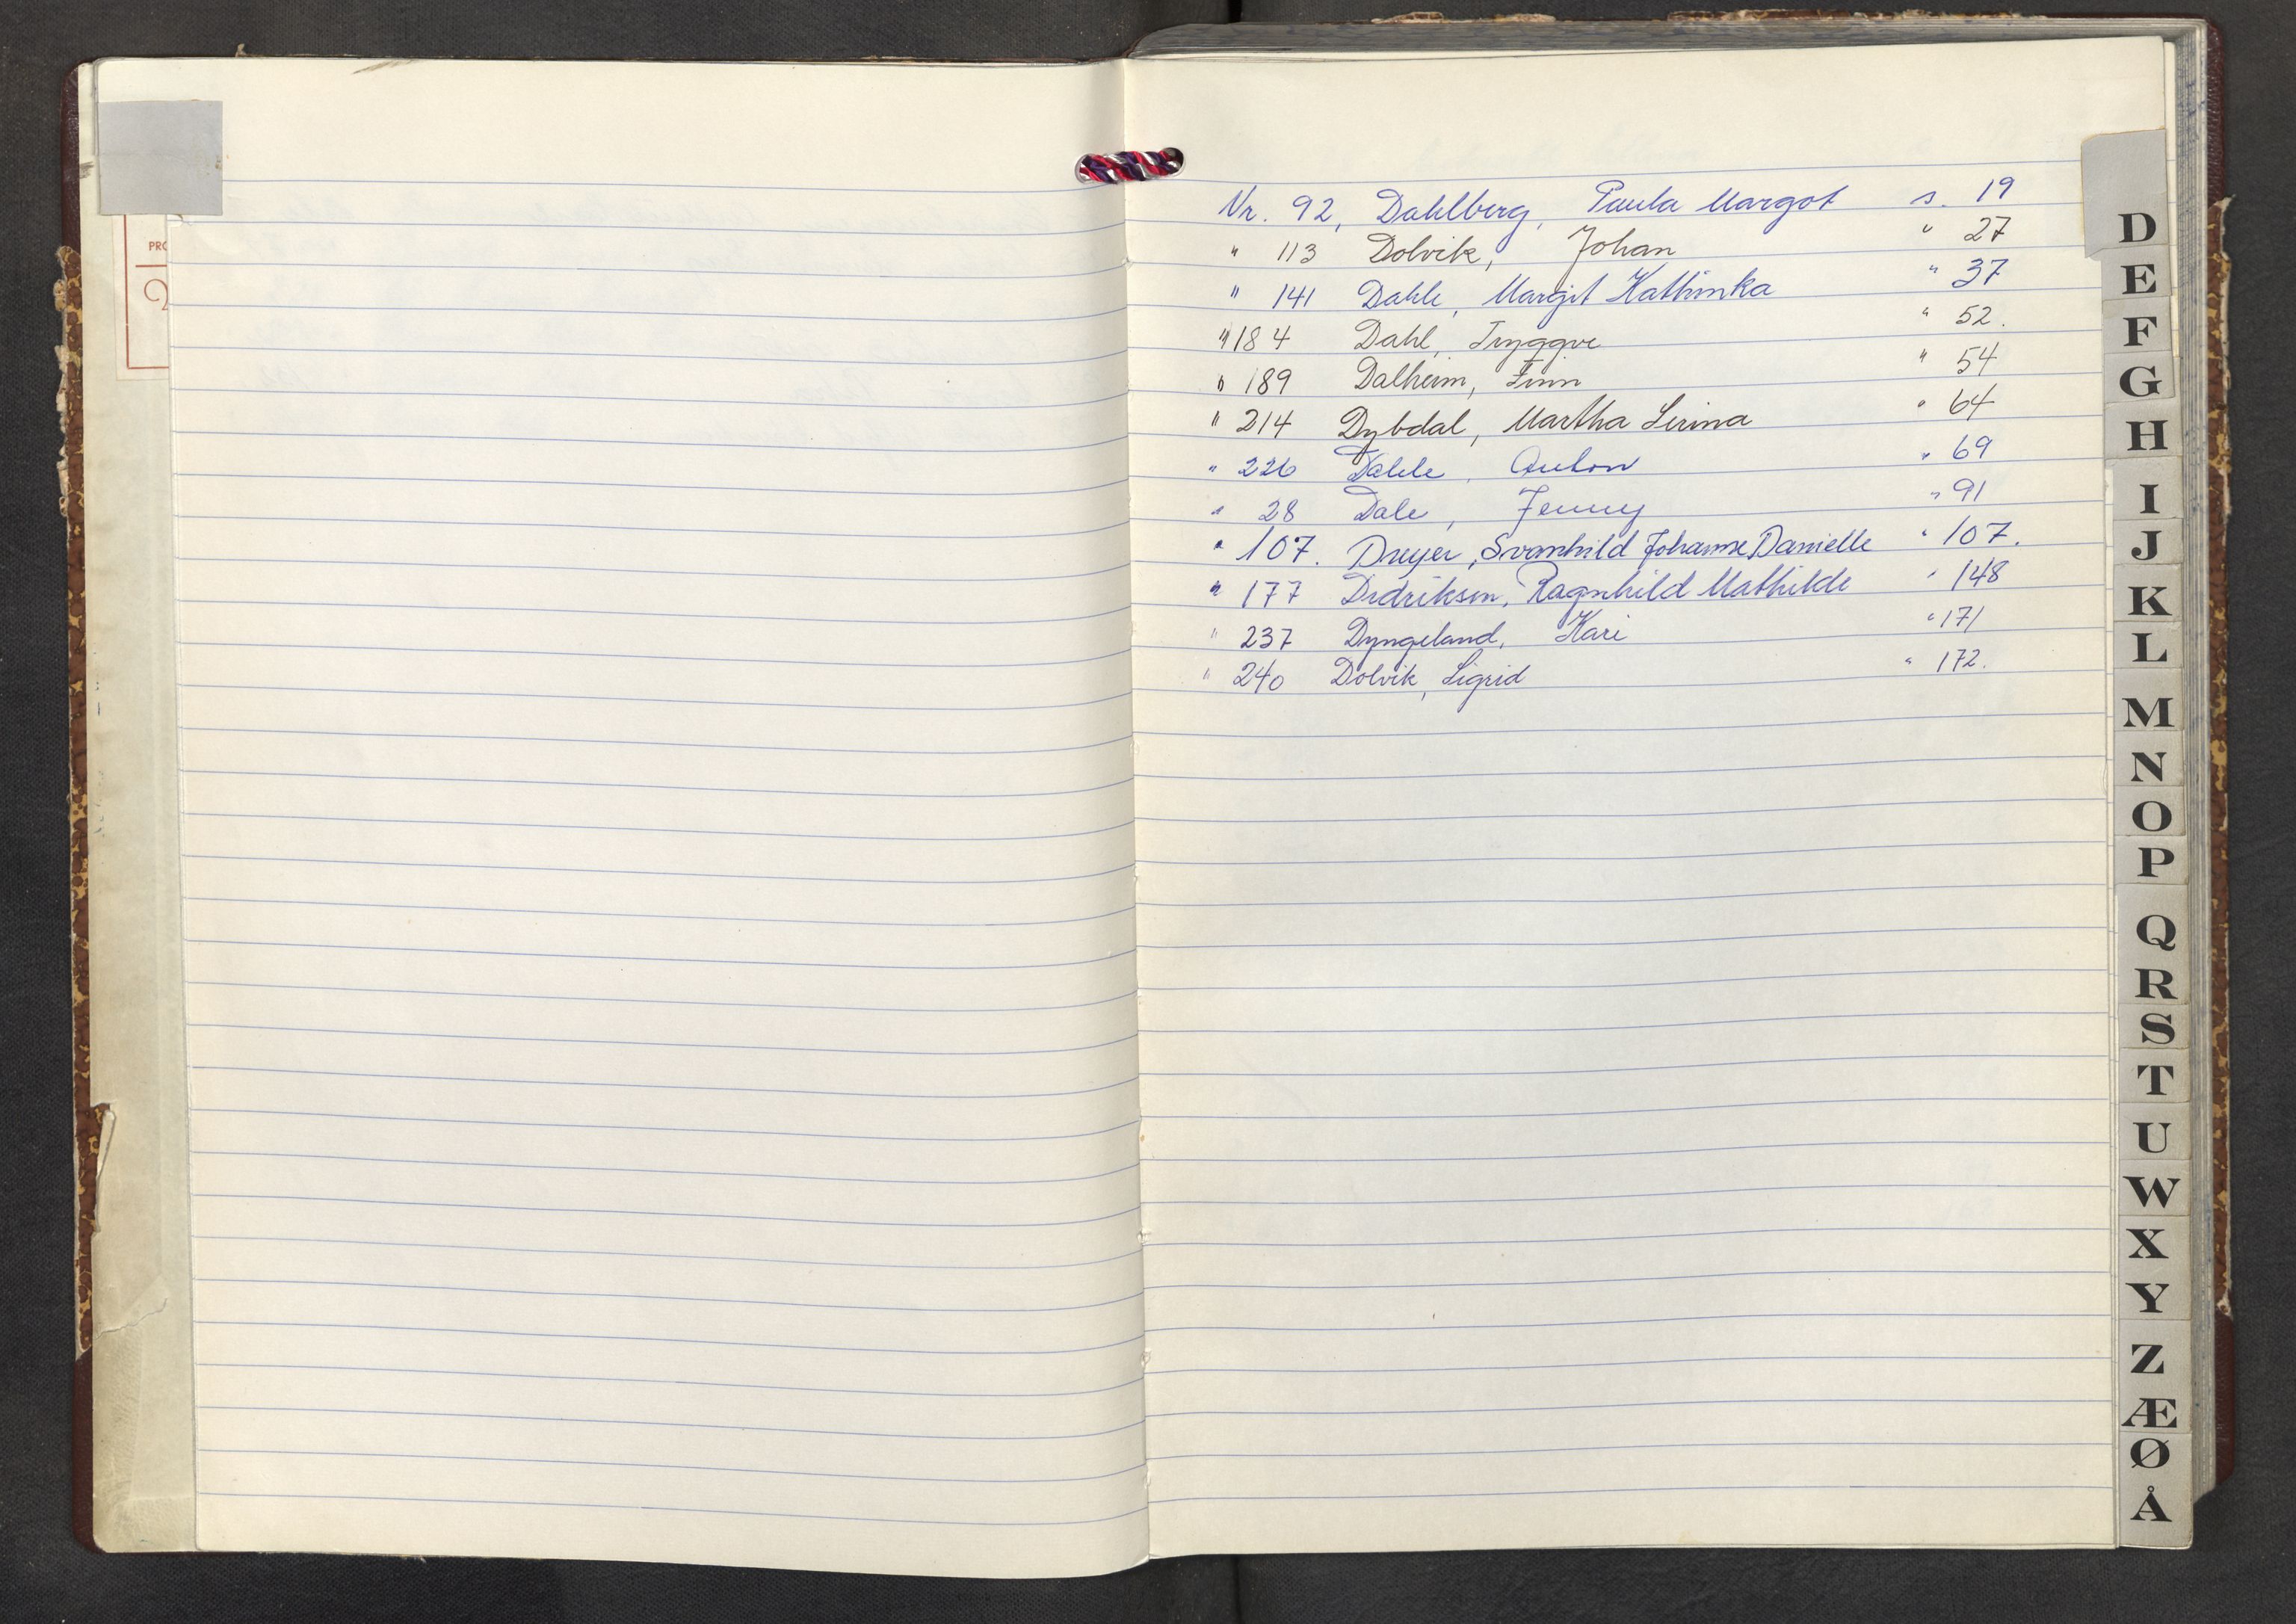 PRO
Nr. 92, Dahlberg, Paula Margot s. 19
" 113 Dolvik, Johan " 27
" 141 Dahle, Margit Kathinka " 37
" 184 Dahl, Tryggve " 52.
" 189 Dalheim, Finn " 54
" 214 Dybdal, Martha Serina " 64
" 226 Dahle, Anton " 69
" 28 Dale, Jenny " 91
" 107. Dreyer, Svanhild Johanne Danielle " 107.
" 177 Didriksen, Ragnhild Mathilde " 148
" 237 Dyngeland, Kari " 171
" 240 Dolvik, Sigrid " 172.
D
E
F
G
H
I
J
K
L
M
N
O
P
Q
R
S
T
U
W
X
Y
Z
Æ
Ø
Å